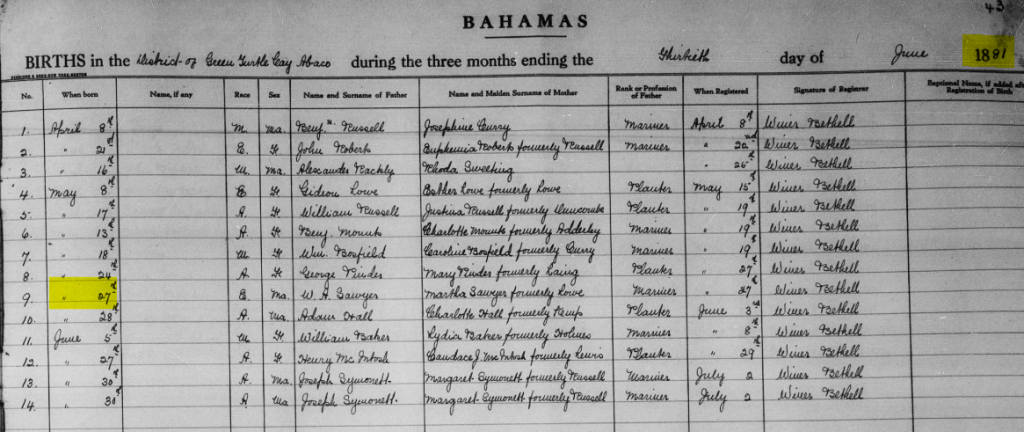 43
BAHAMAS
BIRTHS in the District of Green Turtle Cay Abaco during the three months ending the Thirtieth day of June 1881
No. When born Name, if any Race Sex Name and Surname of Father Name and Maiden Surname of Mother Rank or Profession of Father When Registered Signature of Registrar Baptismal Name, if added after Registration of Birth
1. April 8th M. Ma. Benjn. Russell Josephine Curry Mariner April 8th Winer Bethell
2. " 21st E. F. John Roberts Euphemia Roberts formerly Russell Mariner " 22nd Winer Bethell
3. " 16th M. Ma. Alexander Rhoda Sweeting " 26th Winer Bethell
4. May 8th E. F. Gideon Lowe Esther Lowe formerly Lowe Planter May 15th Winer Bethell
5. " 17th A. F. William Russell Justina Russell formerly Duncombe Planter " 19th Winer Bethell
6. " 13th A. F. Benj. Mounts Charlotte Mounts formerly Adderley Mariner " 19th Winer Bethell
7. " 18th M. F. Wm. Bosfield Caroline Bosfield formerly Curry Mariner " 19th Winer Bethell
8. " 24th A. F. George Pinder Mary Pinder formerly Laing Planter " 27th Winer Bethell
9. " 27th E. Ma. W. A. Sawyer Martha Sawyer formerly Lowe Mariner " 27 Winer Bethell
10. " 28th A. Ma. Adam Hall Charlotte Hall formerly Kemp Planter June 3rd Winer Bethell
11. June 5th M. F. William Baker Lydia Baker formerly Holmes Mariner " 8th Winer Bethell
12. " 27th A. F. Henry McIntosh Candace J. McIntosh formerly Lewis Planter " 29th Winer Bethell
13. " 30th A. Ma. Joseph Symonett Margaret Symonett formerly Russell Mariner July 2 Winer Bethell
14. " 30th A. Ma Joseph Symonett Margaret Symonett formerly Russell Mariner July 2 Winer Bethell